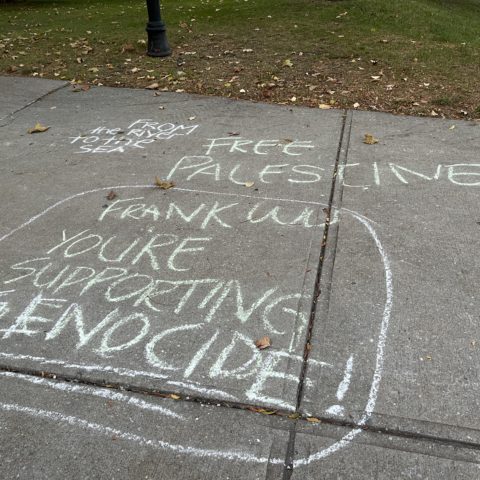 FROM
the RIVER
TO THE
SEA
FREE
PALESTINE
FRANK WU
YOU'RE
SUPPORTING
GENOCIDE!